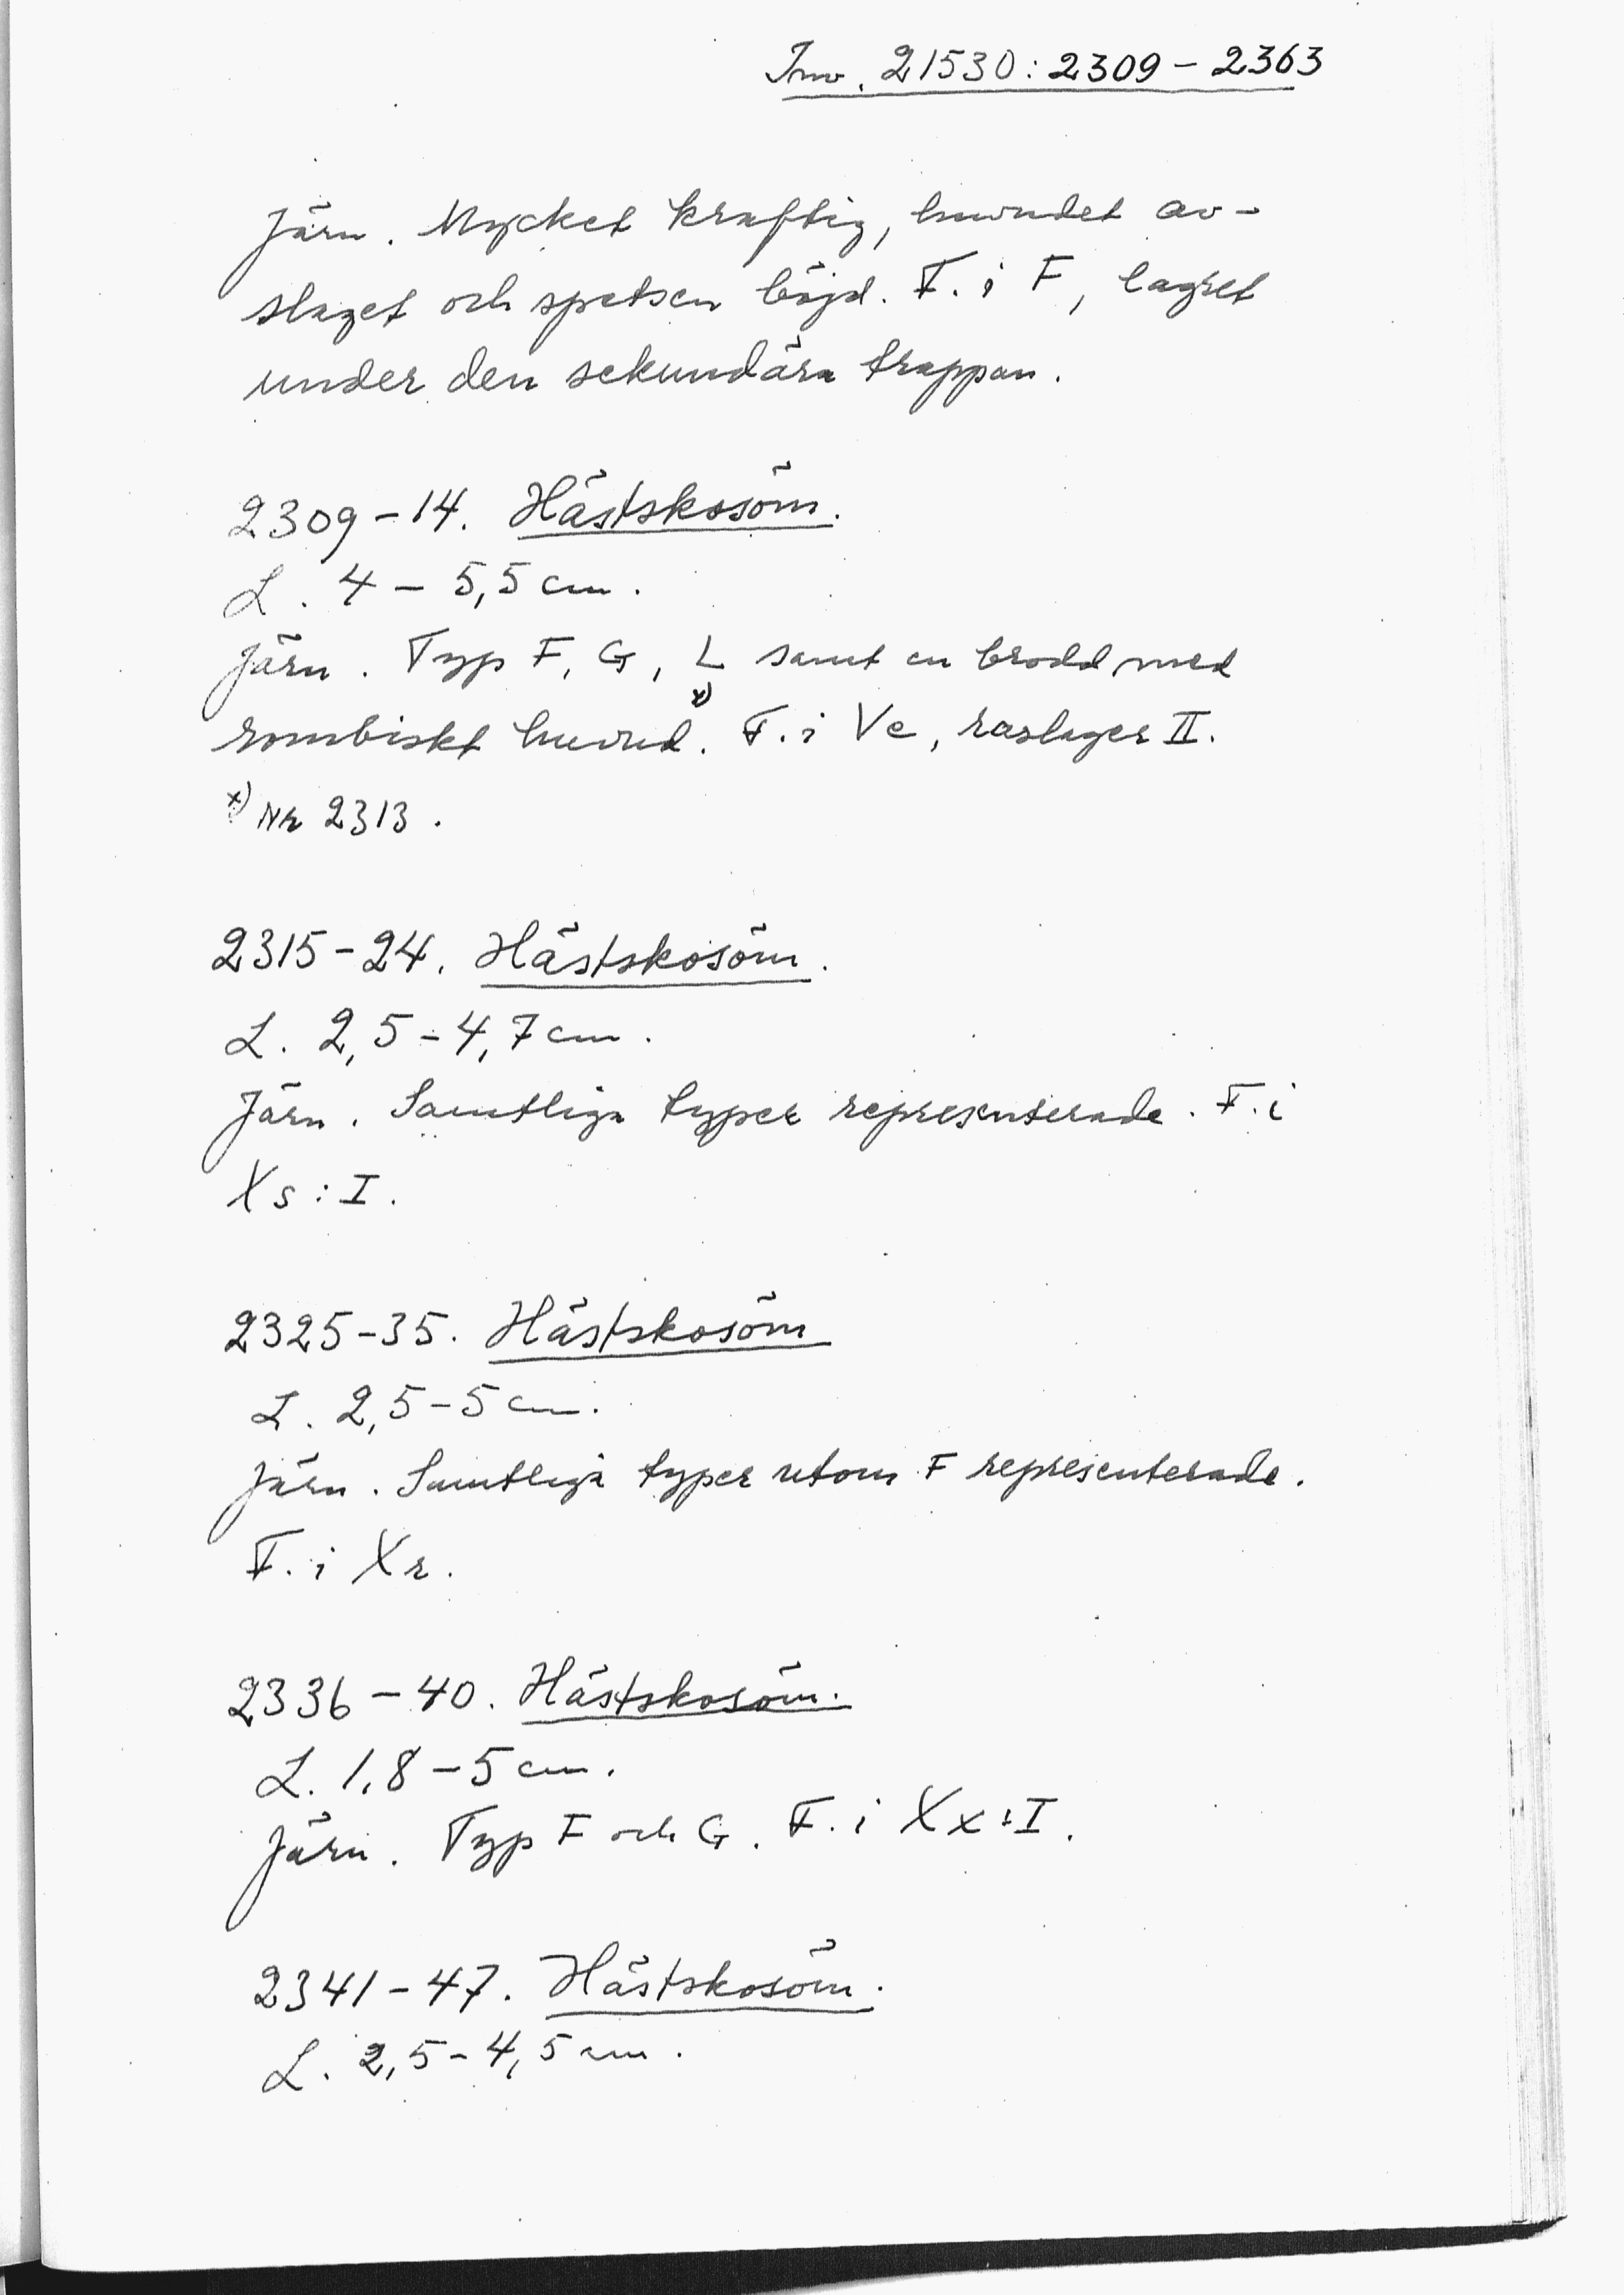 Inv. 21530:2309-2363
Järn. Mycket kraftig, huvudet av-
slaget och spetsen böjd. F. i F, lagret
under den sekundära trappan.
2309-14. Hästskosöm.
L. 4-5,5 cm.
Järn. Typ F, G, L samt en brodd med
rombiskt huvud. x) F. i Ve, raslager II.
x) Nr 2313.
2315-24. Hästskosöm.
L. 2,5-4,7 cm.
Järn. Samtliga typer representerade. F. i
Xs:I.
2325-35. Hästskosöm
L. 2,5-5 cm.
Järn. Samtliga typer utom F representerade.
F. i Xr.
2336-40. Hästskosöm.
L. 1,8-5 cm.
Järn. Typ F och G. F. i Xx:I.
2341-47. Hästskosöm.
L. 2,5-4,5 cm.